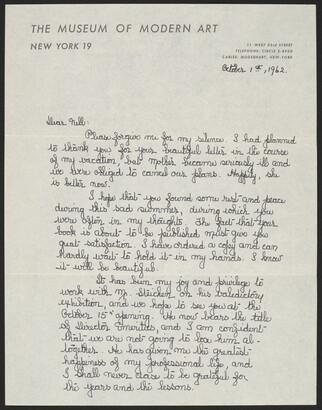 THE MUSEUM OF MODERN ART
NEW YORK 19
11 WEST 53rd STREET
TELEPHONE: CIRCLE 5-8900
CABLES: MODERNART, NEW-YORK
October 1st, 1962
Dear Nell:
Please forgive me for my silence. I had planned
to thank you for your beautiful letter in the course
of my vacation, but mother became seriously ill and
we were obliged to cancel our plans. Happily, she
is better now.
I hope that you found some rest and peace
during this sad summer, during which you
were often in my thoughts. The fact that your
book is about to be published must give you
great satisfaction. I have ordered a copy and can
hardly wait to hold it in my hands. I know
it will be beautiful.
It has been my joy and privilege to
work with Mr. Steichen on his valedictory
exhibition, and we hope to see you at the
October 15th opening. He now bears the title
of Director Emeritus, and I am confident
that we are not going to lose him al-
together. He has given me the greatest
happiness of my professional life, and
I shall never cease to be grateful for
the years and the lessons.